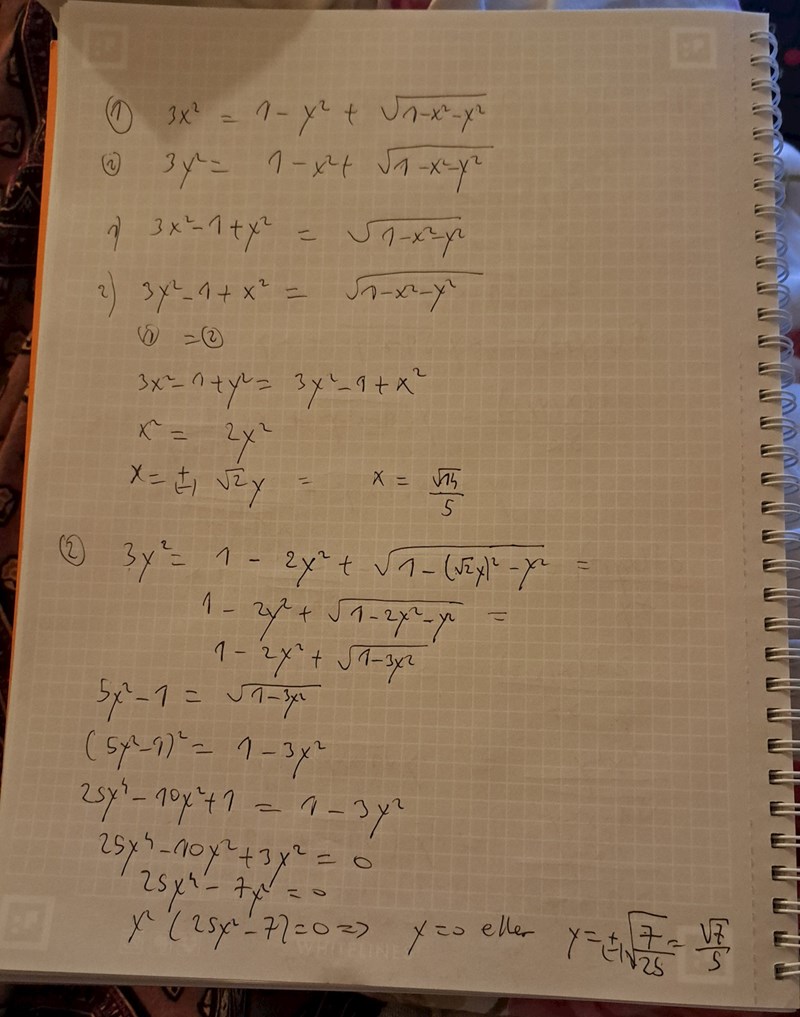 ① 3x² = 1 - y² + √(1-x²-y²)
② 3y² = 1 - x² + √(1-x²-y²)
1) 3x² - 1 + y² = √(1-x²-y²)
2) 3y² - 1 + x² = √(1-x²-y²)
① = ②
3x² - 1 + y² = 3y² - 1 + x²
x² = 2y²
x = ±(-) √2 y = x = √14/5
② 3y² = 1 - 2y² + √(1-(√2y)²-y²) =
1 - 2y² + √(1-2y²-y²) =
1 - 2y² + √(1-3y²)
5y² - 1 = √(1-3y²)
(5y²-1)² = 1 - 3y²
25y⁴ - 10y² + 1 = 1 - 3y²
25y⁴ - 10y² + 3y² = 0
25y⁴ - 7y² = 0
y² (25y² - 7) = 0 => y = 0 eller y = ±(-) √(7/25) = √7/5